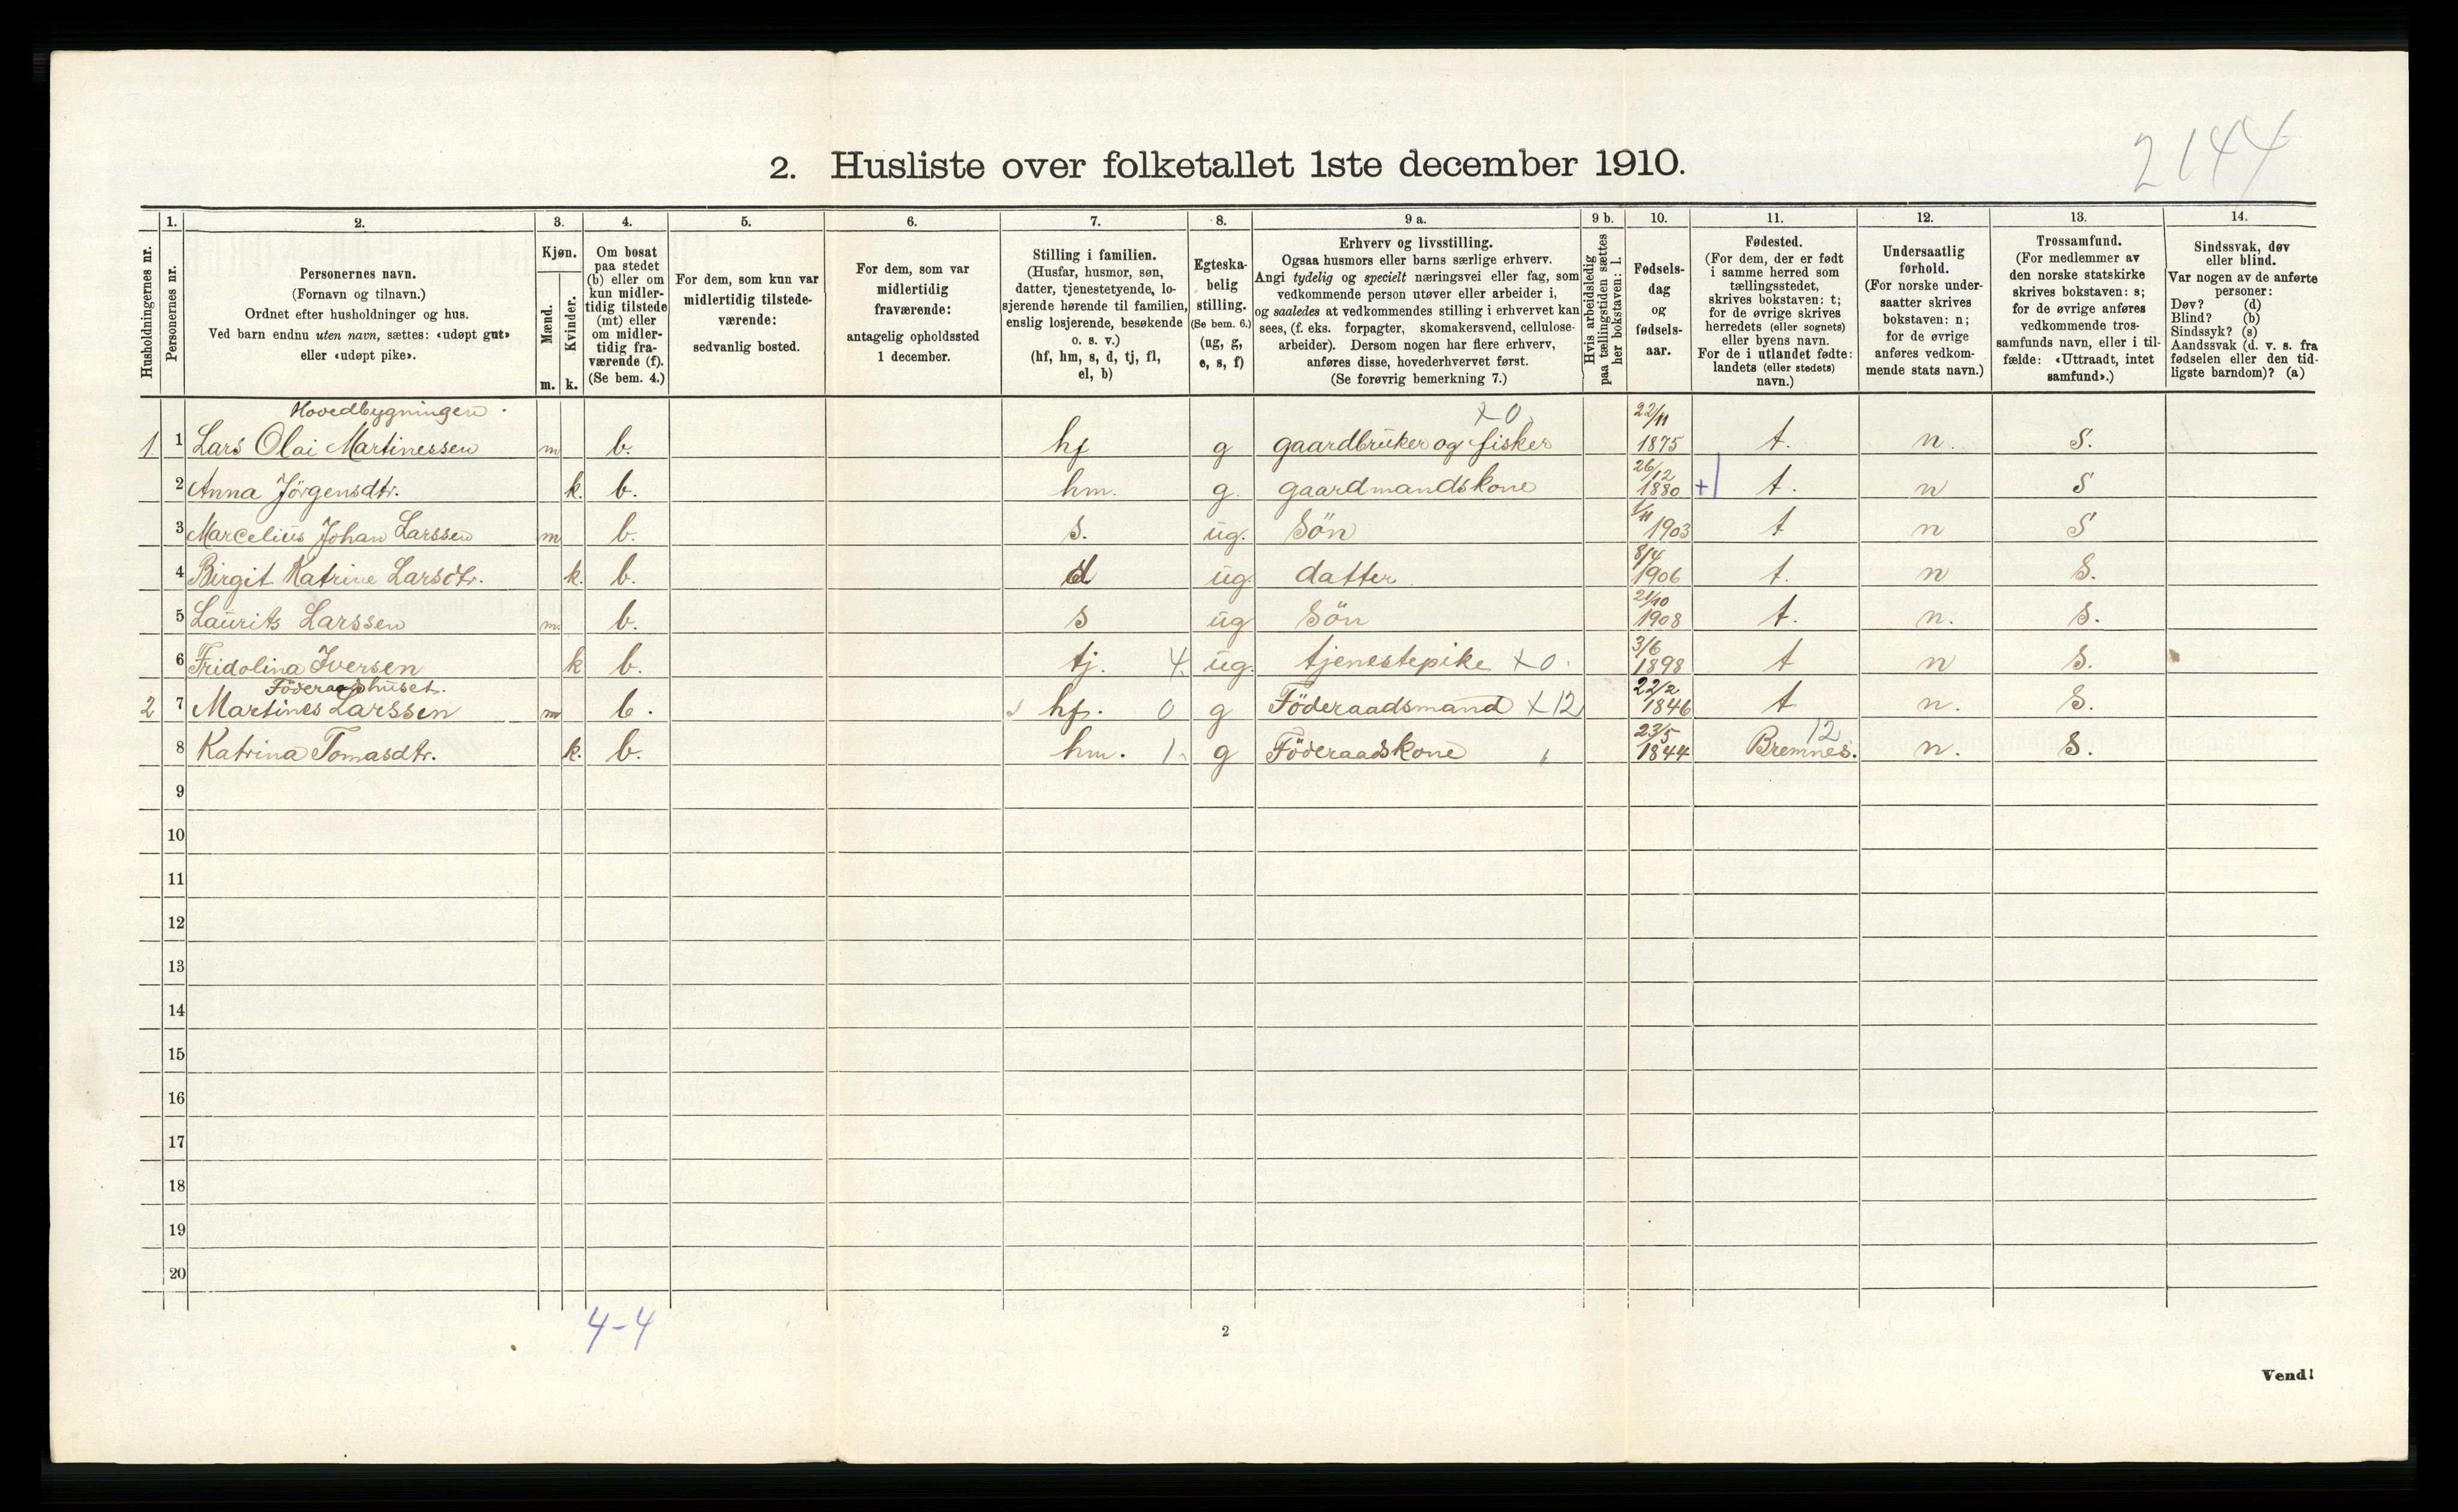 2144
2. Husliste over folketallet 1ste december 1910.
Husholdningernes nr.
1.
Personernes nr.
2.
Personernes navn.
(Fornavn og tilnavn.)
Ordnet efter husholdninger og hus.
Ved barn endnu uten navn, sættes: «udøpt gut»
eller «udøpt pike».
3.
Kjøn.
Mænd.
Kvinder.
m. k.
4.
Om bosat
paa stedet
(b) eller om
kun midler-
tidig tilstede
(mt) eller
om midler-
tidig fra-
værende (f).
(Se bem. 4.)
5.
For dem, som kun var
midlertidig tilstede-
værende:
sedvanlig bosted.
6.
For dem, som var
midlertidig
fraværende:
antagelig opholdssted
1 december.
7.
Stilling i familien.
(Husfar, husmor, søn,
datter, tjenestetyende, lo-
sjerende hørende til familien,
enslig losjerende, besøkende
o. s. v.)
(hf, hm, s, d, tj, fl,
el, b)
8.
Egteska-
belig
stilling.
(Se bem. 6.)
(ug, g,
e, s, f)
9 a.
Erhverv og livsstilling.
Ogsaa husmors eller barns særlige erhverv.
Angi tydelig og specielt næringsvei eller fag, som
vedkommende person utøver eller arbeider i,
og saaledes at vedkommendes stilling i erhvervet kan
sees, (f. eks. forpagter, skomakersvend, cellulose-
arbeider). Dersom nogen har flere erhverv,
anføres disse, hovederhvervet først.
(Se forøvrig bemerkning 7.)
9 b.
Hvis arbeidsledig
paa tællingstiden sættes
her bokstaven: l.
10.
Fødsels-
dag
og
fødsels-
aar.
11.
Fødested.
(For dem, der er født
i samme herred som
tællingsstedet,
skrives bokstaven: t;
for de øvrige skrives
herredets (eller sognets)
eller byens navn.
For de i utlandet fødte:
landets (eller stedets)
navn.)
12.
Undersaatlig
forhold.
(For norske under-
saatter skrives
bokstaven: n;
for de øvrige
anføres vedkom-
mende stats navn.)
13.
Trossamfund.
(For medlemmer av
den norske statskirke
skrives bokstaven: s;
for de øvrige anføres
vedkommende tros-
samfunds navn, eller i til-
fælde: «Uttraadt, intet
samfund».)
14.
Sindssvak, døv
eller blind.
Var nogen av de anførte
personer:
Døv? (d)
Blind? (b)
Sindssyk? (s)
Aandssvak (d. v. s. fra
fødselen eller den tid-
ligste barndom)? (a)
Hovedbygningen. x 0 22/11
1 1 Lars Olai Martinessen m b. hf g gaardbruker og fisker 1875 t. n. S.
2 Anna Jörgensdtr. k. b. hm. g. gaardmandskone 26/12 1880 + t. n S
3 Marcelius Johan Larssen m b. s. ug. Sön 1/11 1903 t n S
4 Birgit Katrine Larsdtr. k. b. d ug. datter 8/4 1906 t. n S.
5 Laurits Larssen m. b. s ug Sön 21/10 1908 t. n. S.
6 Fridolina Iversen k b. tj. 4. ug. tjenestepike x 0. 3/6 1898 t n S.
Föderaadshuset.
2 7 Martines Larssen m b. hf. 0 g Föderaadsmand x 12 22/2 1846 t n. S.
8 Katrina Tomasdtr. k. b. hm. 1. g Föderaadskone " 23/5 1844 Bremnes. 12 n. S.
9
10
11
12
13
14
15
16
17
18
19
20
4-4
2
Vend!